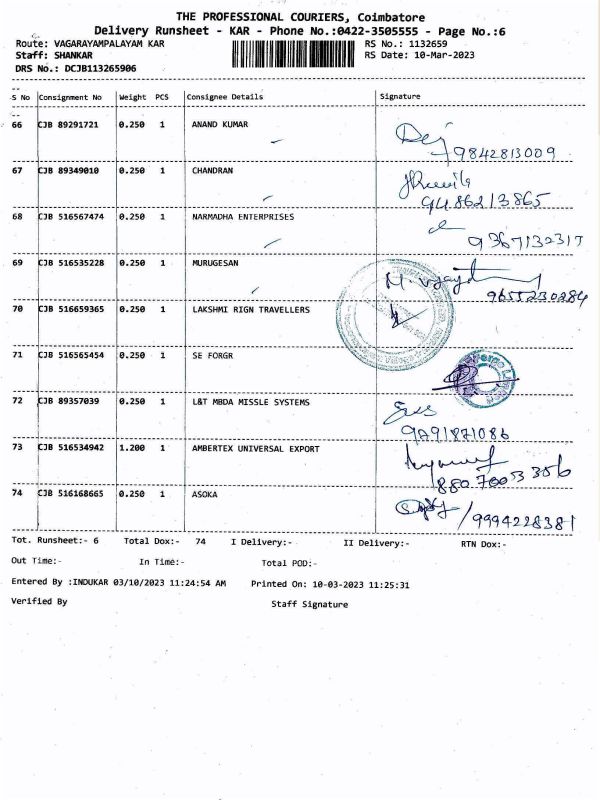 THE PROFESSIONAL COURIERS, Coimbatore
Delivery Runsheet - KAR - Phone No.:0422-3505555 - Page No.:6
Route: VAGARAYAMPALAYAM KAR RS No.: 1132659
Staff: SHANKAR RS Date: 10-Mar-2023
DRS No.: DCJB113265906
S No Consignment No Weight PCS Consignee Details Signature
66 CJB 89291721 0.250 1 ANAND KUMAR
9842813009
67 CJB 89349010 0.250 1 CHANDRAN
9486213865
68 CJB 516567474 0.250 1 NARMADHA ENTERPRISES
9367132317
69 CJB 516535228 0.250 1 MURUGESAN
9655230284
70 CJB 516659365 0.250 1 LAKSHMI RIGN TRAVELLERS
71 CJB 516565454 0.250 1 SE FORGR
72 CJB 89357039 0.250 1 L&T MBDA MISSLE SYSTEMS
73 CJB 516534942 1.200 1 AMBERTEX UNIVERSAL EXPORT
8807003356
74 CJB 516168665 0.250 1 ASOKA
9994228381
Tot. Runsheet:- 6 Total Dox:- 74 I Delivery:- II Delivery:- RTN Dox:-
Out Time:- In Time:- Total POD:-
Entered By :INDUKAR 03/10/2023 11:24:54 AM Printed On: 10-03-2023 11:25:31
Verified By Staff Signature